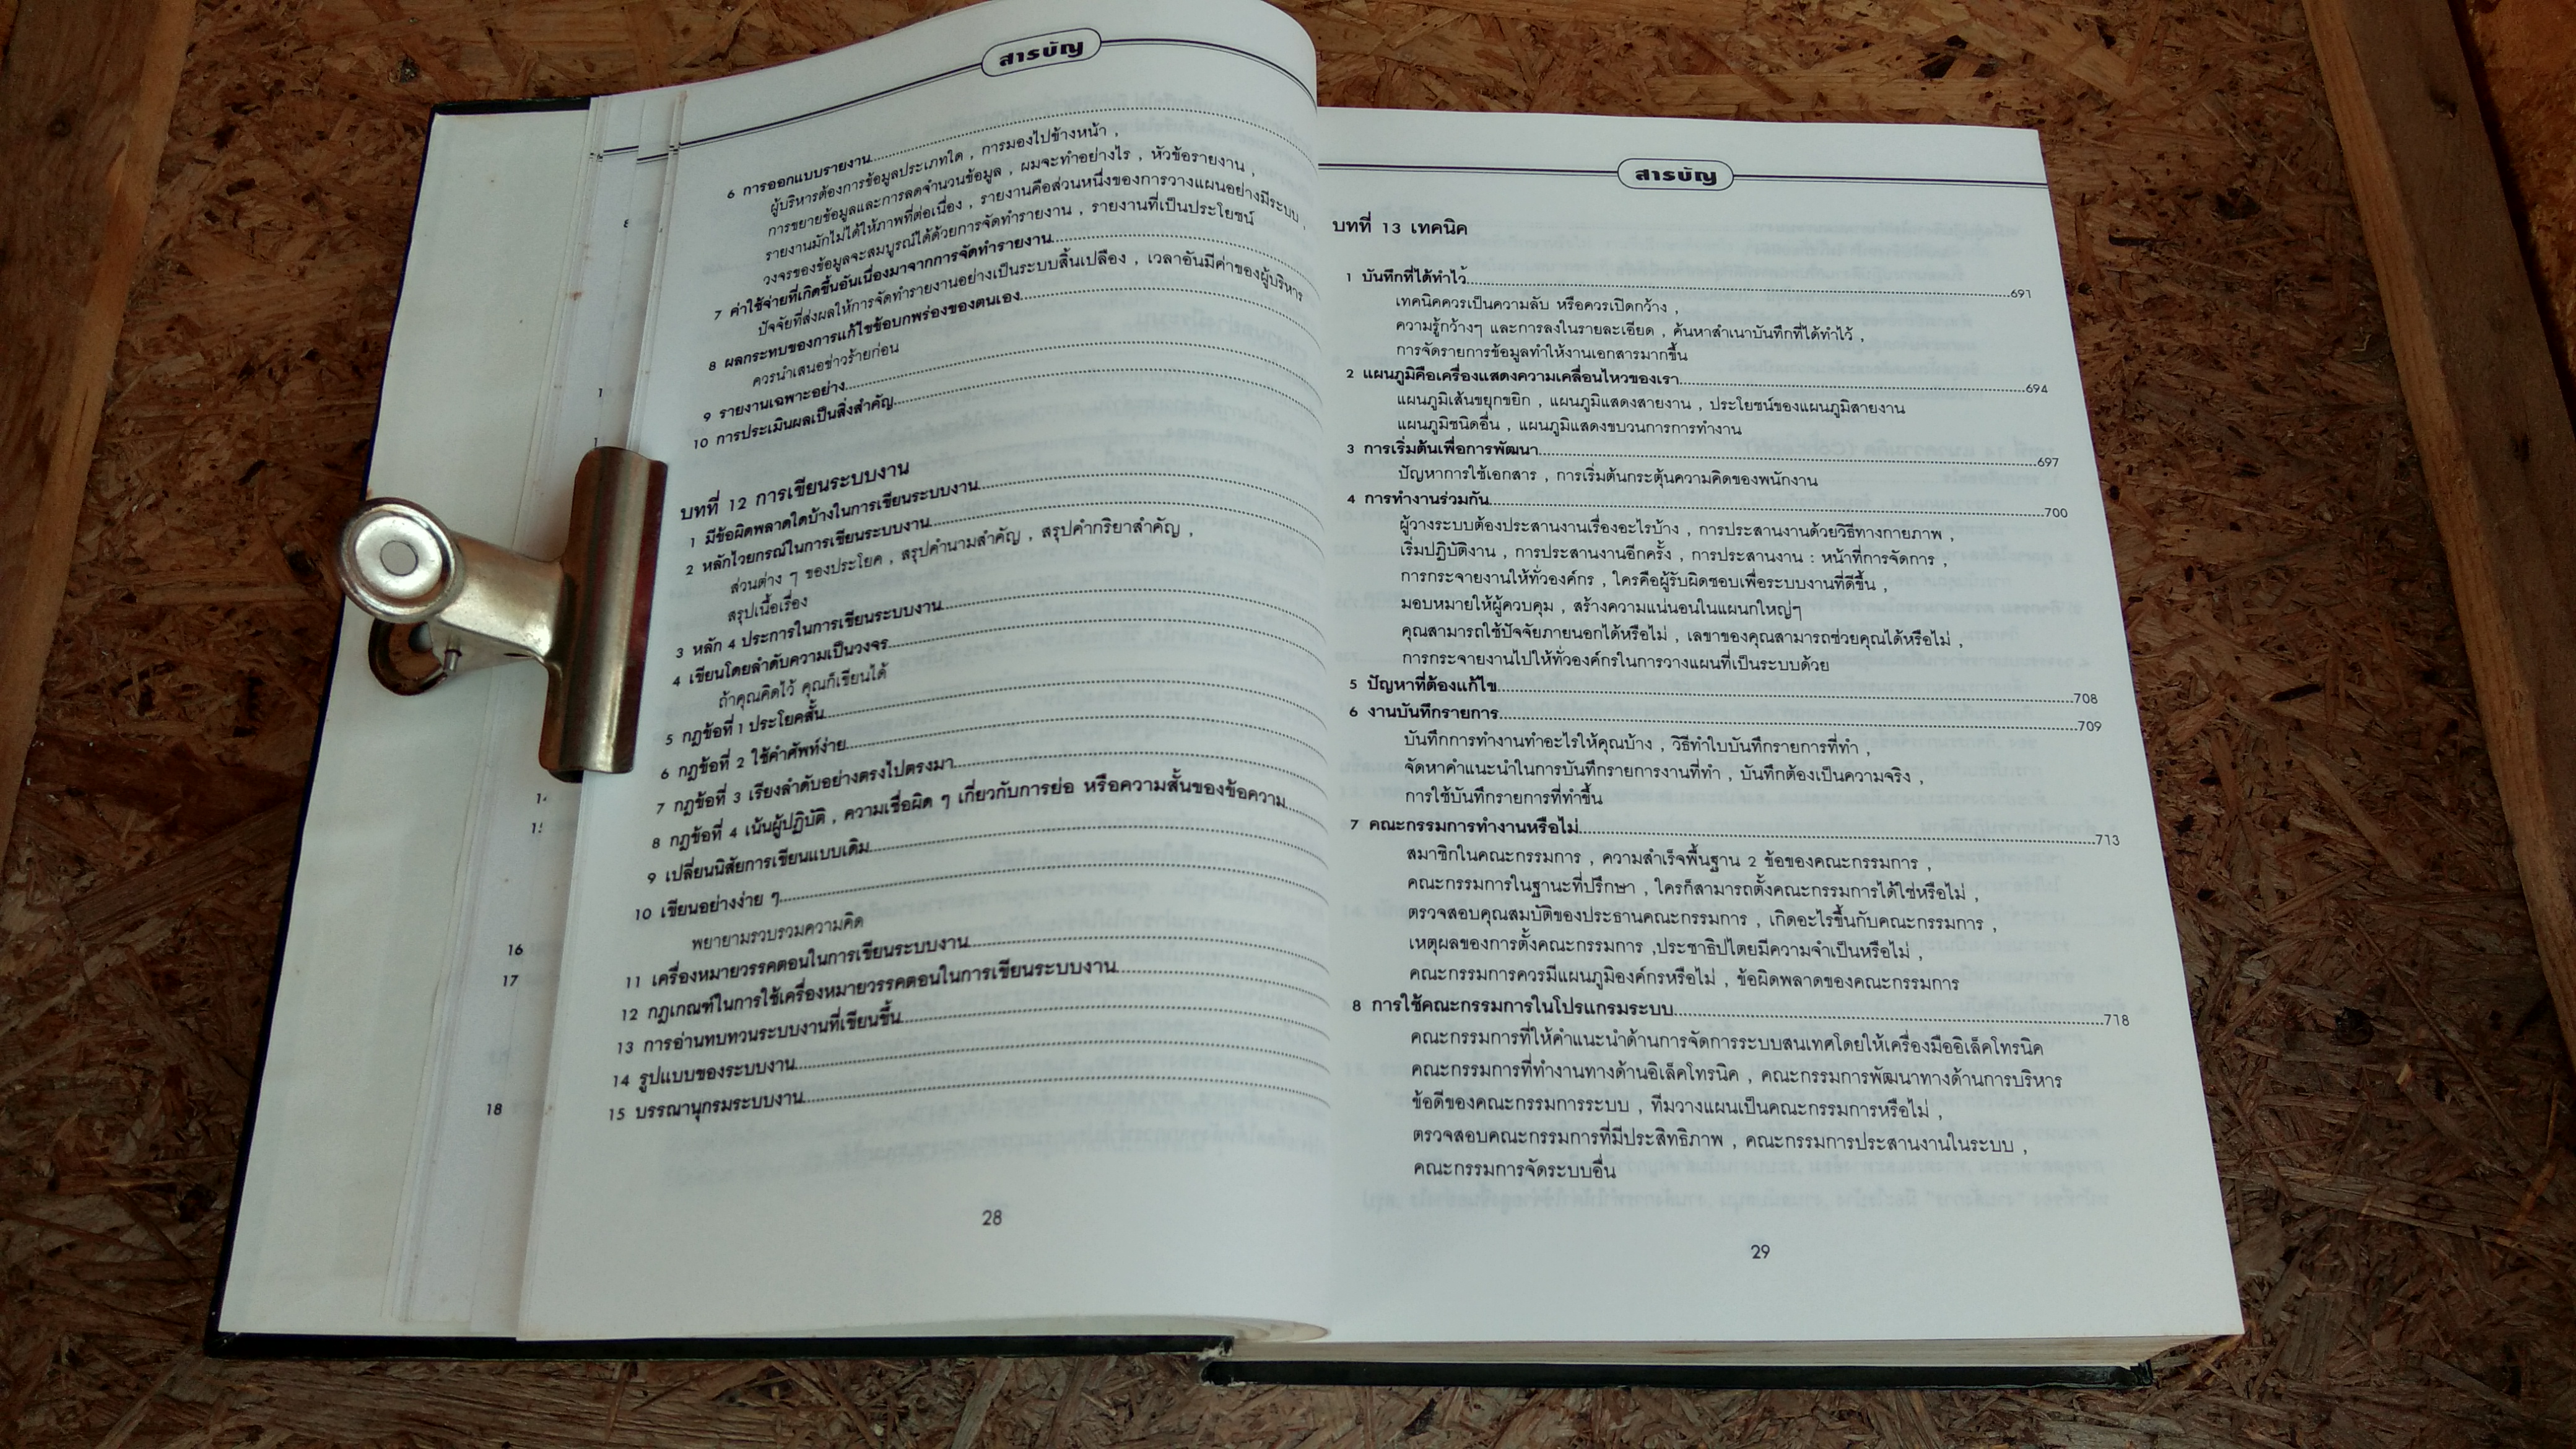 สารบัญ
6 การออกแบบรายงาน
ผู้บริหารต้องการข้อมูลประเภทใด , การมองไปข้างหน้า ,
การขยายข้อมูลและการลดจำนวนข้อมูล , ผมจะทำอย่างไร , หัวข้อรายงาน ,
รายงานมักไม่ได้ให้ภาพที่ต่อเนื่อง , รายงานคือส่วนหนึ่งของการวางแผนอย่างมีระบบ ,
วงจรของข้อมูลจะสมบูรณ์ได้ด้วยการจัดทำรายงาน , รายงานที่เป็นประโยชน์
7 ค่าใช้จ่ายที่เกิดขึ้นอันเนื่องมาจากการจัดทำรายงาน
ปัจจัยที่ส่งผลให้การจัดทำรายงานอย่างเป็นระบบสิ้นเปลือง , เวลาอันมีค่าของผู้บริหาร
8 ผลกระทบของการแก้ไขข้อบกพร่องของตนเอง
ควรนำเสนอข่าวร้ายก่อน
9 รายงานเฉพาะอย่าง
10 การประเมินผลเป็นสิ่งสำคัญ
บทที่ 12 การเขียนระบบงาน
1 มีข้อผิดพลาดใดบ้างในการเขียนระบบงาน
2 หลักไวยกรณ์ในการเขียนระบบงาน
ส่วนต่าง ๆ ของประโยค , สรุปคำนามสำคัญ , สรุปคำกริยาสำคัญ ,
สรุปเนื้อเรื่อง
3 หลัก 4 ประการในการเขียนระบบงาน
4 เขียนโดยลำดับความเป็นวงจร
ถ้าคุณคิดไว้ คุณก็เขียนได้
5 กฎข้อที่ 1 ประโยคสั้น
6 กฎข้อที่ 2 ใช้คำศัพท์ง่าย
7 กฎข้อที่ 3 เรียงลำดับอย่างตรงไปตรงมา
8 กฎข้อที่ 4 เน้นผู้ปฏิบัติ , ความเชื่อผิด ๆ เกี่ยวกับการย่อ หรือความสั้นของข้อความ
9 เปลี่ยนนิสัยการเขียนแบบเดิม
10 เขียนอย่างง่าย ๆ
พยายามรวบรวมความคิด
11 เครื่องหมายวรรคตอนในการเขียนระบบงาน
12 กฎเกณฑ์ในการใช้เครื่องหมายวรรคตอนในการเขียนระบบงาน
13 การอ่านทบทวนระบบงานที่เขียนขึ้น
14 รูปแบบของระบบงาน
15 บรรณานุกรมระบบงาน
28
16
17
18
สารบัญ
บทที่ 13 เทคนิค
1 บันทึกที่ได้ทำไว้ 691
เทคนิคควรเป็นความลับ หรือควรเปิดกว้าง ,
ความรู้กว้างๆ และการลงในรายละเอียด , ค้นหาสำเนาบันทึกที่ได้ทำไว้ ,
การจัดรายการข้อมูลทำให้งานเอกสารมากขึ้น
2 แผนภูมิคือเครื่องแสดงความเคลื่อนไหวของเรา 694
แผนภูมิเส้นขยุกขยิก , แผนภูมิแสดงสายงาน , ประโยชน์ของแผนภูมิสายงาน
แผนภูมิชนิดอื่น , แผนภูมิแสดงขบวนการการทำงาน
3 การเริ่มต้นเพื่อการพัฒนา 697
ปัญหาการใช้เอกสาร , การเริ่มต้นกระตุ้นความคิดของพนักงาน
4 การทำงานร่วมกัน 700
ผู้วางระบบต้องประสานงานเรื่องอะไรบ้าง , การประสานงานด้วยวิธีทางกายภาพ ,
เริ่มปฏิบัติงาน , การประสานงานอีกครั้ง , การประสานงาน : หน้าที่การจัดการ ,
การกระจายงานให้ทั่วองค์กร , ใครคือผู้รับผิดชอบเพื่อระบบงานที่ดีขึ้น ,
มอบหมายให้ผู้ควบคุม , สร้างความแน่นอนในแผนกใหญ่ๆ
คุณสามารถใช้ปัจจัยภายนอกได้หรือไม่ , เลขาของคุณสามารถช่วยคุณได้หรือไม่ ,
การกระจายงานไปให้ทั่วองค์กรในการวางแผนที่เป็นระบบด้วย
5 ปัญหาที่ต้องแก้ไข 708
6 งานบันทึกรายการ 709
บันทึกการทำงานทำอะไรให้คุณบ้าง , วิธีทำใบบันทึกรายการที่ทำ ,
จัดหาคำแนะนำในการบันทึกรายการงานที่ทำ , บันทึกต้องเป็นความจริง ,
การใช้บันทึกรายการที่ทำขึ้น
7 คณะกรรมการทำงานหรือไม่ 713
สมาชิกในคณะกรรมการ , ความสำเร็จพื้นฐาน 2 ข้อของคณะกรรมการ ,
คณะกรรมการในฐานะที่ปรึกษา , ใครก็สามารถตั้งคณะกรรมการได้ใช่หรือไม่ ,
ตรวจสอบคุณสมบัติของประธานคณะกรรมการ , เกิดอะไรขึ้นกับคณะกรรมการ ,
เหตุผลของการตั้งคณะกรรมการ ,ประชาธิปไตยมีความจำเป็นหรือไม่ ,
คณะกรรมการควรมีแผนภูมิองค์กรหรือไม่ , ข้อผิดพลาดของคณะกรรมการ
8 การใช้คณะกรรมการในโปรแกรมระบบ 718
คณะกรรมการที่ให้คำแนะนำด้านการจัดการระบบสนเทศโดยให้เครื่องมืออิเล็คโทรนิค
คณะกรรมการที่ทำงานทางด้านอิเล็คโทรนิค , คณะกรรมการพัฒนาทางด้านการบริหาร
ข้อดีของคณะกรรมการระบบ , ทีมวางแผนเป็นคณะกรรมการหรือไม่ ,
ตรวจสอบคณะกรรมการที่มีประสิทธิภาพ , คณะกรรมการประสานงานในระบบ ,
คณะกรรมการจัดระบบอื่น
29